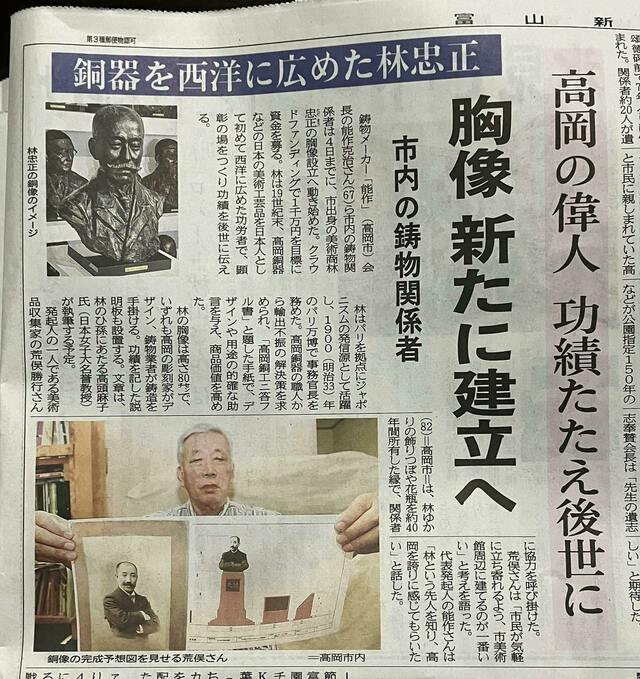 富山新
第3種郵便物認可
銅器を西洋に広めた林忠正
高岡の偉人 功績たたえ後世に
胸像 新たに建立へ
市内の鋳物関係者
林忠正の銅像のイメージ
鋳物メーカー「能作」(高岡市)会
長の能作克治さん(67)ら市内の鋳物関
係者は4日までに、市出身の美術商林
忠正の胸像設立へ動き始めた。クラウ
ドファンディングで1千万円を目標に
資金を募る。林は19世紀末、高岡銅器
などの日本の美術工芸品を日本人とし
て初めて西洋に広めた功労者で、顕
彰の場をつくり功績を後世に伝え
る。
林はパリを拠点にジャポ
ニスムの発信源として活躍
し、1900(明治33)年
のパリ万博で事務官長を
務めた。高岡銅器の職人か
ら輸出不振の解決策を求
められ、「高岡銅工ニ答フ
ル書」と題した手紙で、デ
ザインや用途の的確な助
言を与え、商品価値を高め
た。
林の胸像は高さ80㌢で、
いずれも高岡の彫刻家がデ
ザイン、鋳物業者が鋳造を
手掛ける。功績を記した説
明板も設置する。文章は、
林のひ孫にあたる高頭麻子
氏(日本女子大名誉教授)
が執筆する予定。
発起人の一人である美術
品収集家の荒俣勝行さん
(82)=高岡市=は、林ゆか
りの飾りつぼや花瓶を約40
年間所有した縁で、関係者
に協力を呼び掛けた。
荒俣さんは「市民が気軽
に立ち寄れるよう、市美術
館周辺に建てるのが一番い
い」と考えを語った。
代表発起人の能作さんは
「林という先人を知り、高
岡を誇りに感じてもらいた
い」と話した。
銅像の完成予想図を見せる荒俣さん
=高岡市内
まれた。関係者約20人が遺
と市民に親しまれていた高
などが公園指定150年の
志奉賛会長は「先生の遺志
しい」と期待した